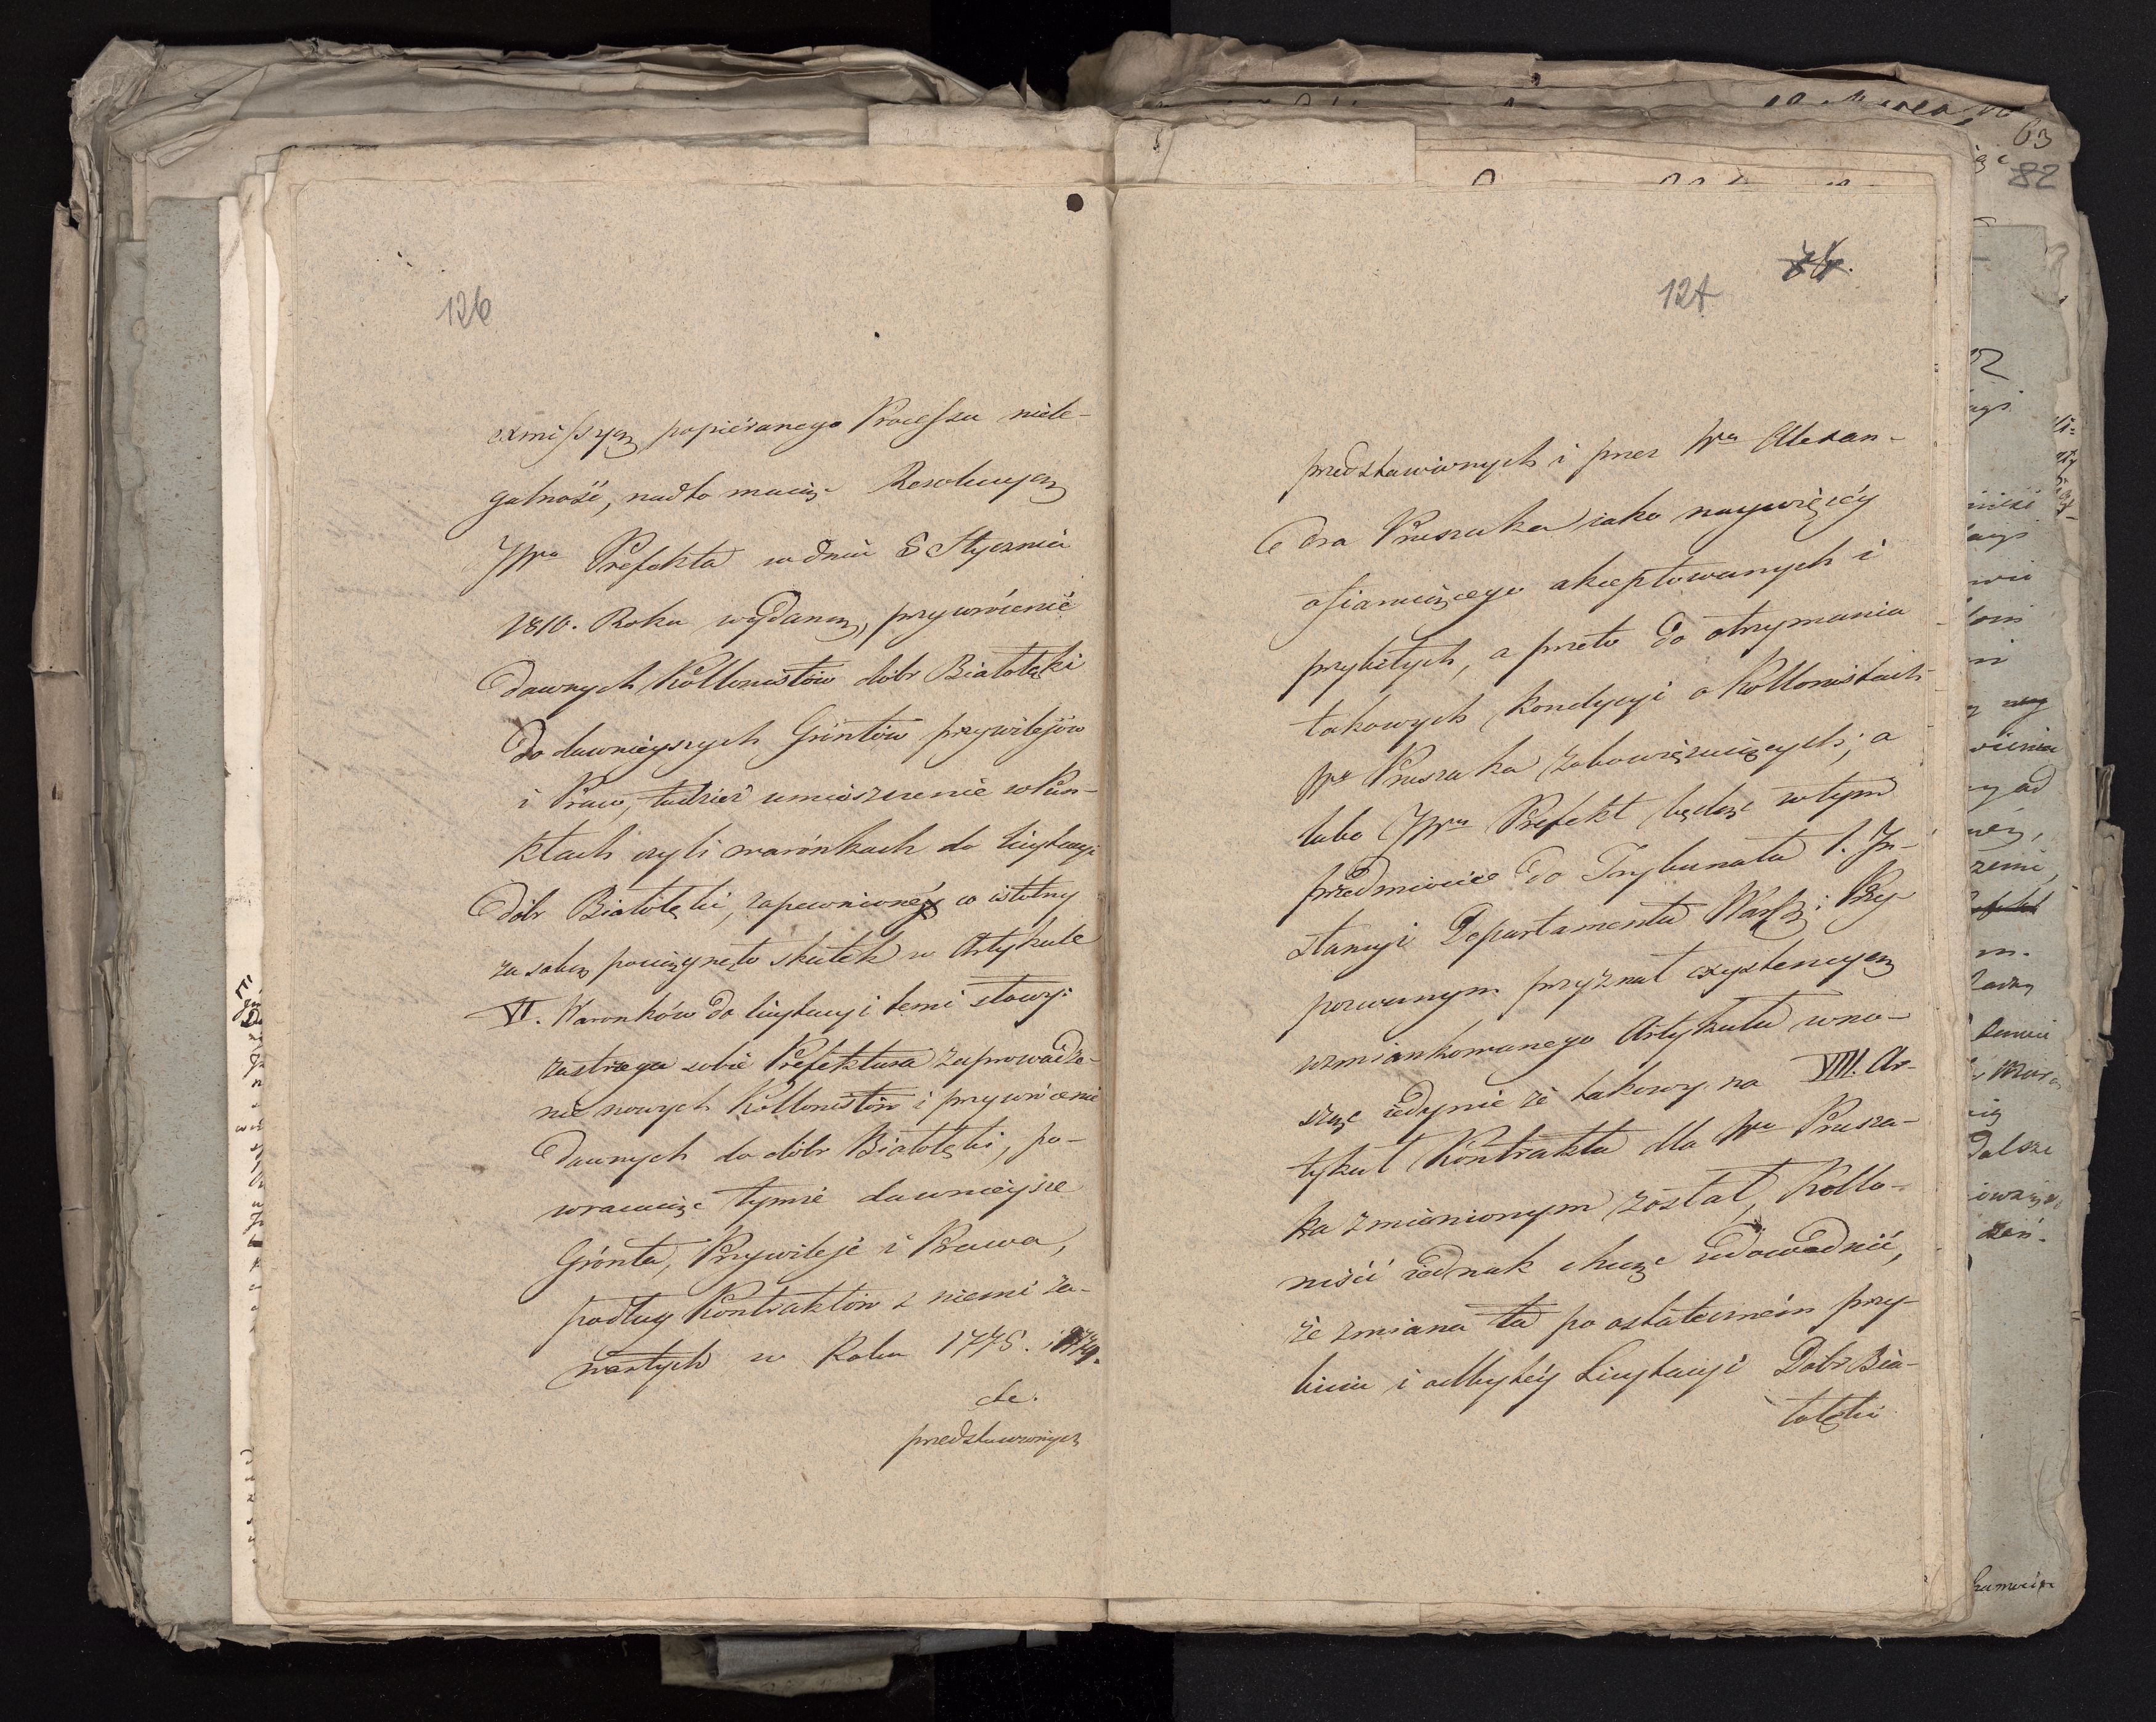 126
exmissyą popiéranego Processu niele-
galność, nadto maiąc Resolucyą
JWo Prefekta w dniu 5 Stycznia
1810. Roku wydaną, przywrócenie
dawnych Kollonistów dóbr Białołęki
do dawnieyszych Gróntów przywilejów
i Praw, tudzież umieszczenie w Pun-
ktach czyli warónkach do licytacyi
dóbr Białołęki, zapewnioney co istotny
za sobą pociągneło skutek w Artykule
VI. Waronków do licytacyi temi słowy:
zastrzega sobie Prefektura zaprowadze-
nie nowych Kollonistów i przywrócenie
dawnych do dóbr Białołęki, po-
wracaiąc tymże dawnieysze
Grónta, Przywileje i Prawa,
podług Kontraktów z niemi za-
wartych w Roku 1775. i 1779.
etc.
przedstawionych
74.
127
przedstawionych i przez Wo Alexan-
dra Pruszaka iako naywięcéy
ofiaruiącego akceptowanych i
przybitych, a przeto do otrzymania
takowych kondycyi o Kollonistach
Wo Pruszaka zobowięzuiących; a
lubo JWny Prefekt będąc w tym
przedmiocie do Trybunału I. In-
stancyi Departamentu Warsz: Przy
pozwanym przyznał exystencyą
wzmiankowanego Artykułu wno-
sząc iedynie że takowy na VIII. Ar-
tykuł Kontraktu dla Wo Prusza-
ka zmienionym został, Kollo-
niści iednak chcąc udowodnić,
że zmiana ta po ostateczném przy-
biciu i odbytéy Licytacyi Dóbr Bia-
łołęki
63
82